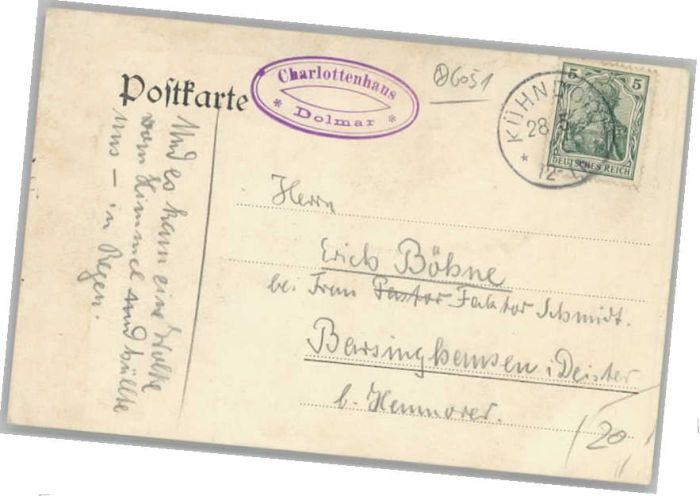 Postkarte
Charlottenhaus
* Dolmar *
6051
KÜHND
28. 5.
12-
*
5 5
DEUTSCHES REICH
Und es kam eine Wolke
vom Himmel und hüllte
uns – in Regen.
Herrn
Erich Böhne
bei Frau Pastor Faktor Schmidt.
Barsinghausen i/Deister
b. Hannover.
20